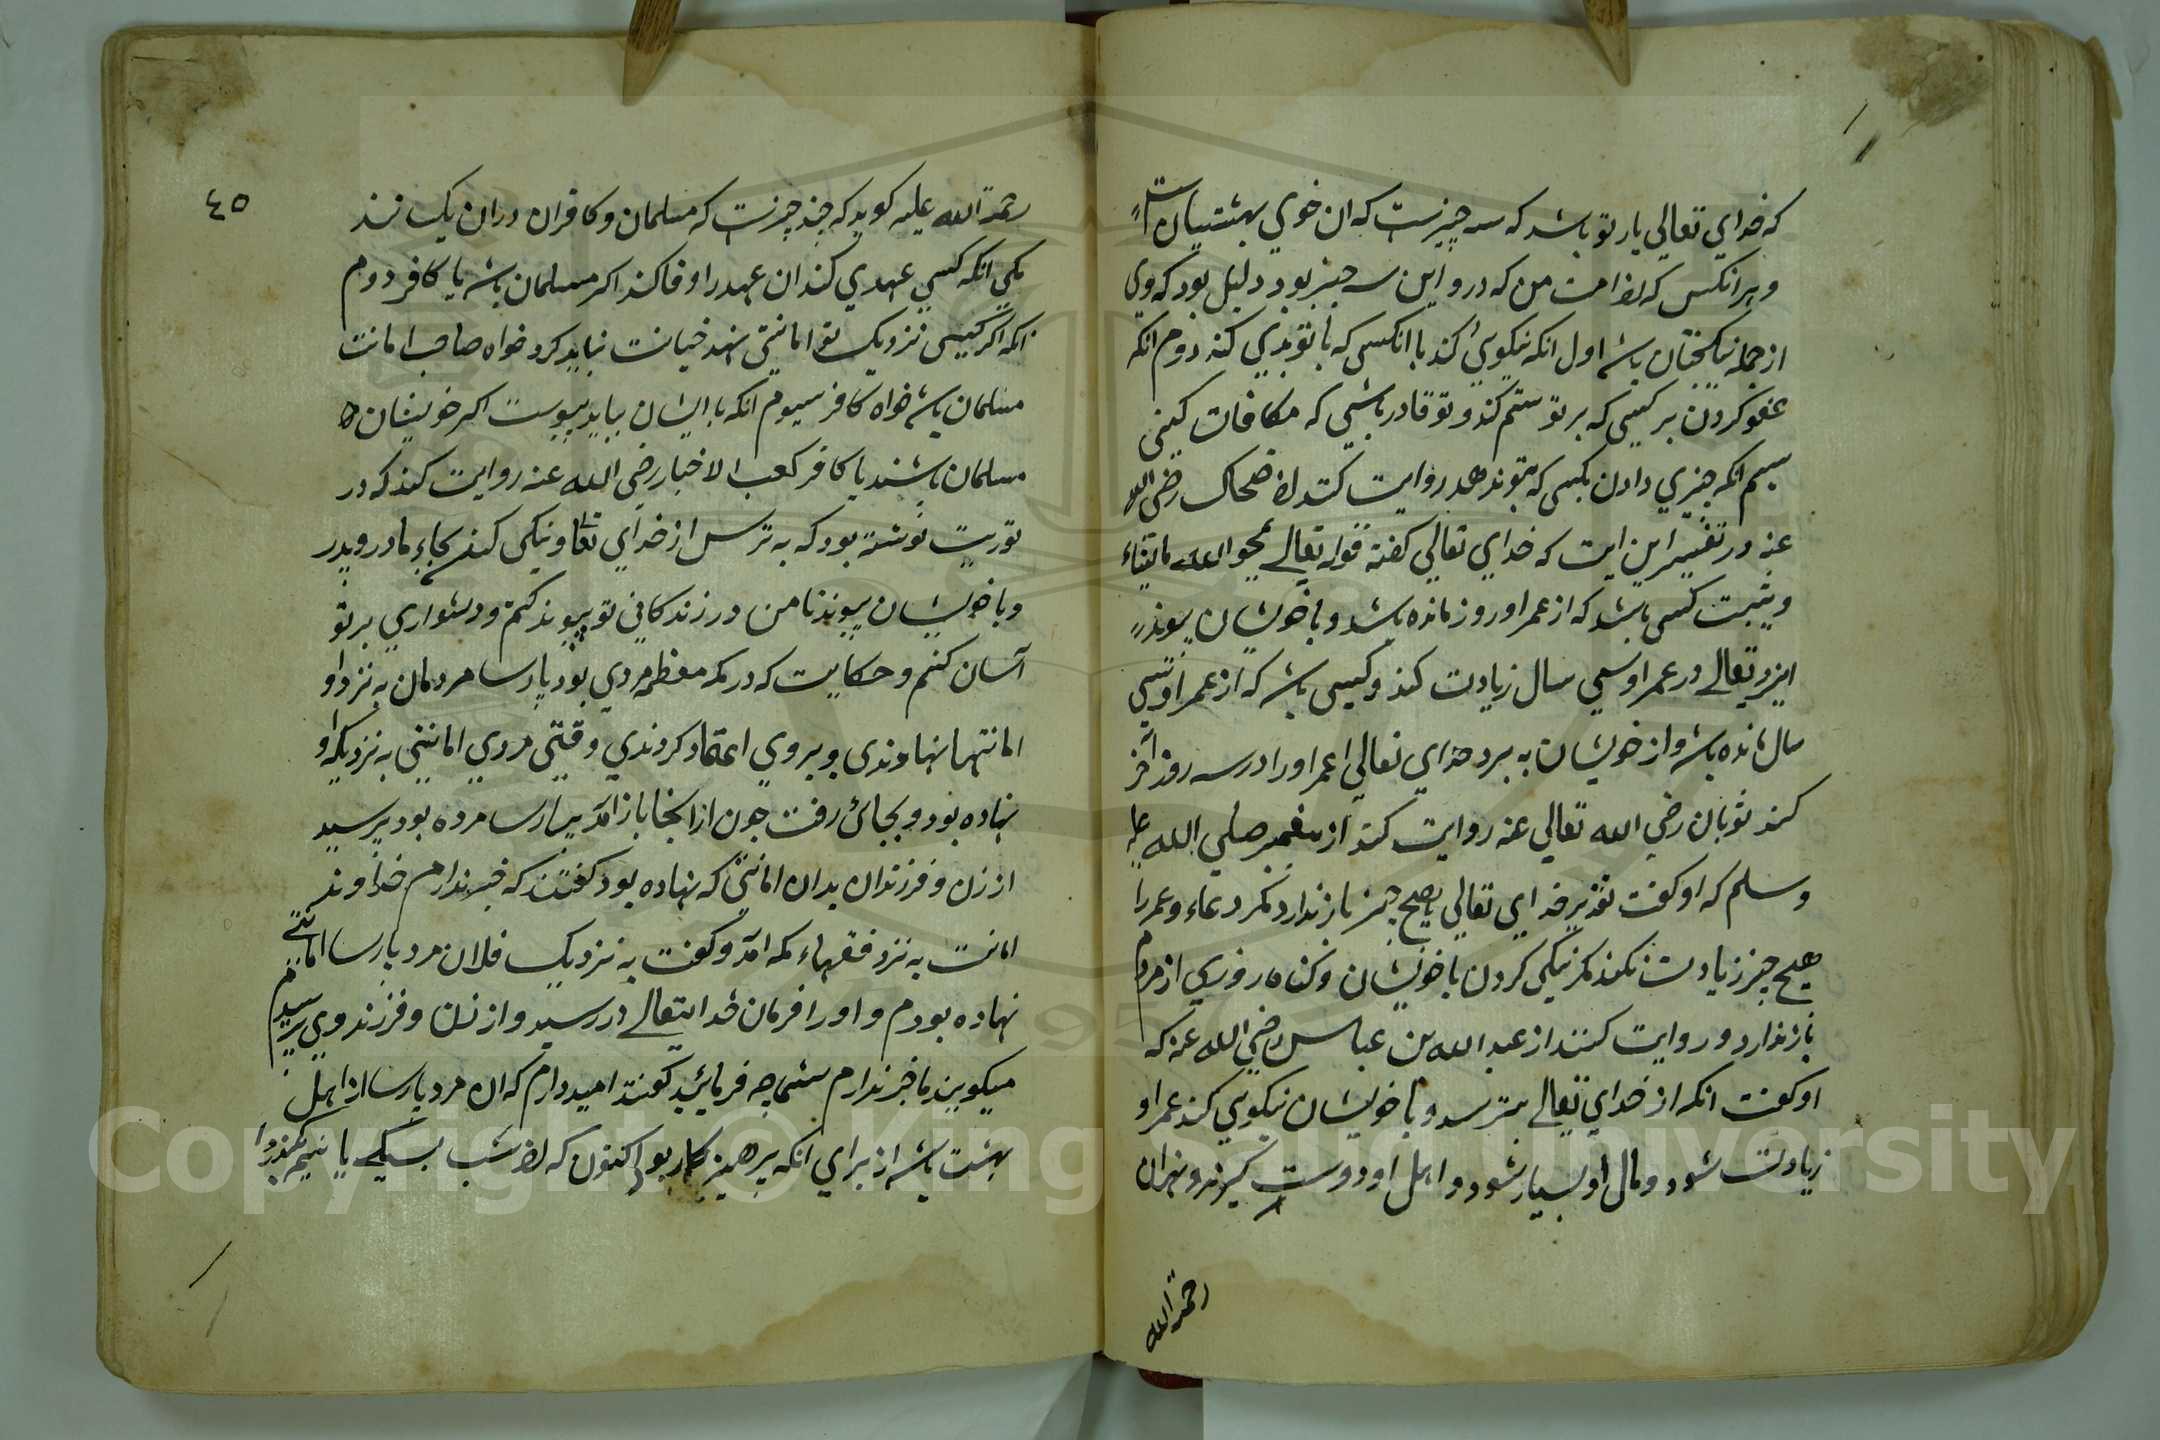 که خدای تعالی یار تو باشد که سه چیزست که ان خوی بهشتیان است
و هر انکس که از امت من که در و این سه چیز بود دلیل بود که وی
از جمله نیکبختان باشد اول انکه نیکویی کند با انکسی که با تو بدی کند دوم انکه
عفو کردن بر کسی که بر تو ستم کند و تو قادر باشی که مکافات کنی
سیم انکه چیزی دادن بکسی که بتو ندهد روایت کنند از ضحاک رضی الله
عنه در تفسیر این ایت که خدای تعالی کفته قوله تعالی یمحو الله ما یشاء
و یثبت کسی باشد که از عمر او روز مانده باشد و با خویشان پیوندد
ایزد تعالی در عمر او سی سال زیادت کند و کسی باشد که از عمر او سی
سال مانده باشد و از خویشان به برد خدای تعالی عمر او را در سه روز اخر
کند ثوبان رضی الله تعالی عنه روایت کند از پیغمبر صلی الله علیه
و سلم که او کفت تقدیر خدای تعالی را هیچ چیز باز ندارد مکر دعاء و عمر را
هیچ چیز زیادت نکند مکر نیکی کردن با خویشان و کناه روزی از مردم
باز ندارد و روایت کنند از عبد الله بن عباس رضی الله عنه که
او کفت انکه از خدای تعالی بترسد و با خویشان نیکویی کند عمر او
زیادت شود و مال او بسیار شود و اهل او دوست کیرند و
رحمة الله
٤٥
رحمة الله علیه کوید که چند چیزست که مسلمان و کافران دران یک
یکی انکه کسی عهدی کند ان عهد را وفا کند اکر مسلمان باشد یا کافر دوم
انکه اکر کسی نزدیک تو امانتی نهد خیانت نباید کرد خواه صاحب امانت
مسلمان باشد خواه کافر سیوم انکه با ایشان بباید پیوست اکر خویشان
مسلمان باشند یا کافر کعب الاخبار رضی الله عنه روایت کند که در
توریت نوشته بود که به ترس از خدای تعا و نیکی کن بجای مادر و پدر
و با خویشان پیوند تا من در زندکانی تو پیوند کنم و دشواری بر تو
آسان کنم و حکایت که در مکه معظمه مردی بود پارسا مردمان به نزد او
امانتها نهادندی و بر وی اعتماد کردندی وقتی مردی امانتی به نزدیک او
نهاده بود و بجائ رفت چون از انجا باز آمد پارسا مرده بود پرسید
از زن و فرزندان بدان امانتی که نهاده بود کفتند که خبر ندارم خداوند
امانت به نزد فقهاء مکه آمد و کفت به نزدیک فلان مرد پارسا امانتی
نهاده بودم و او را فرمان خدایتعالی در رسید و از زن و فرزند وی پرسیدم
میکویند ما خبر ندارم شما چه فرمائید کفتند امید دارم که ان مرد پارسا از اهل
بهشت باشد از برای انکه پرهیز کار بود اکنون که از شب سیکی یا نیم بکذرد